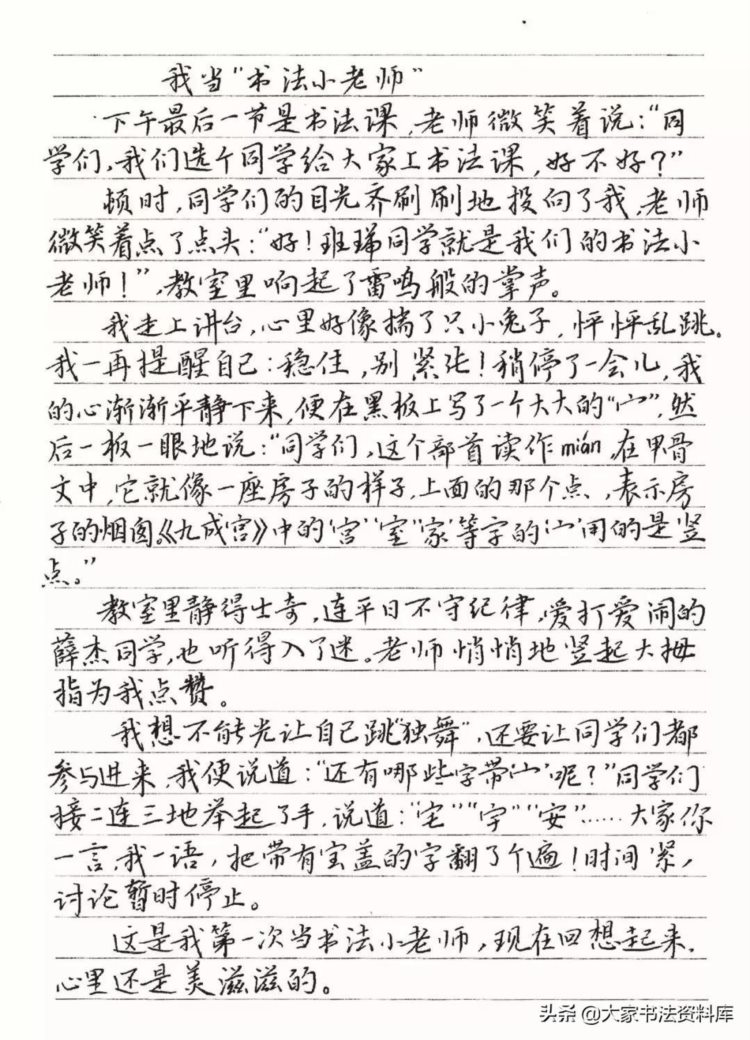 我当“书法小老师”
下午最后一节是书法课，老师微笑着说：“同
学们，我们选个同学给大家上书法课，好不好？”
顿时，同学们的目光齐刷刷地投向了我，老师
微笑着点了点头：“好！班瑞同学就是我们的书法小
老师！”，教室里响起了雷鸣般的掌声。
我走上讲台，心里好像揣了只小兔子，怦怦乱跳。
我一再提醒自己：稳住，别紧张！稍停了一会儿，我
的心渐渐平静下来，便在黑板上写了一个大大的“宀”，然
后一板一眼地说：“同学们，这个部首读作mián，在甲骨
文中，它就像一座房子的样子，上面的那个点，表示房
子的烟囱。《九成宫》中的‘宫’‘室’‘家’等字的‘宀’用的是竖
点。”
教室里静得出奇，连平日不守纪律，爱打爱闹的
薛杰同学，也听得入了迷。老师悄悄地竖起大拇
指为我点赞。
我想不能光让自己跳“独舞”，还要让同学们都
参与进来，我便说道：“还有哪些字带‘宀’呢？”同学们
接二连三地举起了手，说道：“宅”“字”“安”……大家你
一言，我一语，把带有宝盖的字翻了个遍！时间紧，
讨论暂时停止。
这是我第一次当书法小老师，现在回想起来，
心里还是美滋滋的。
头条@大家书法资料库